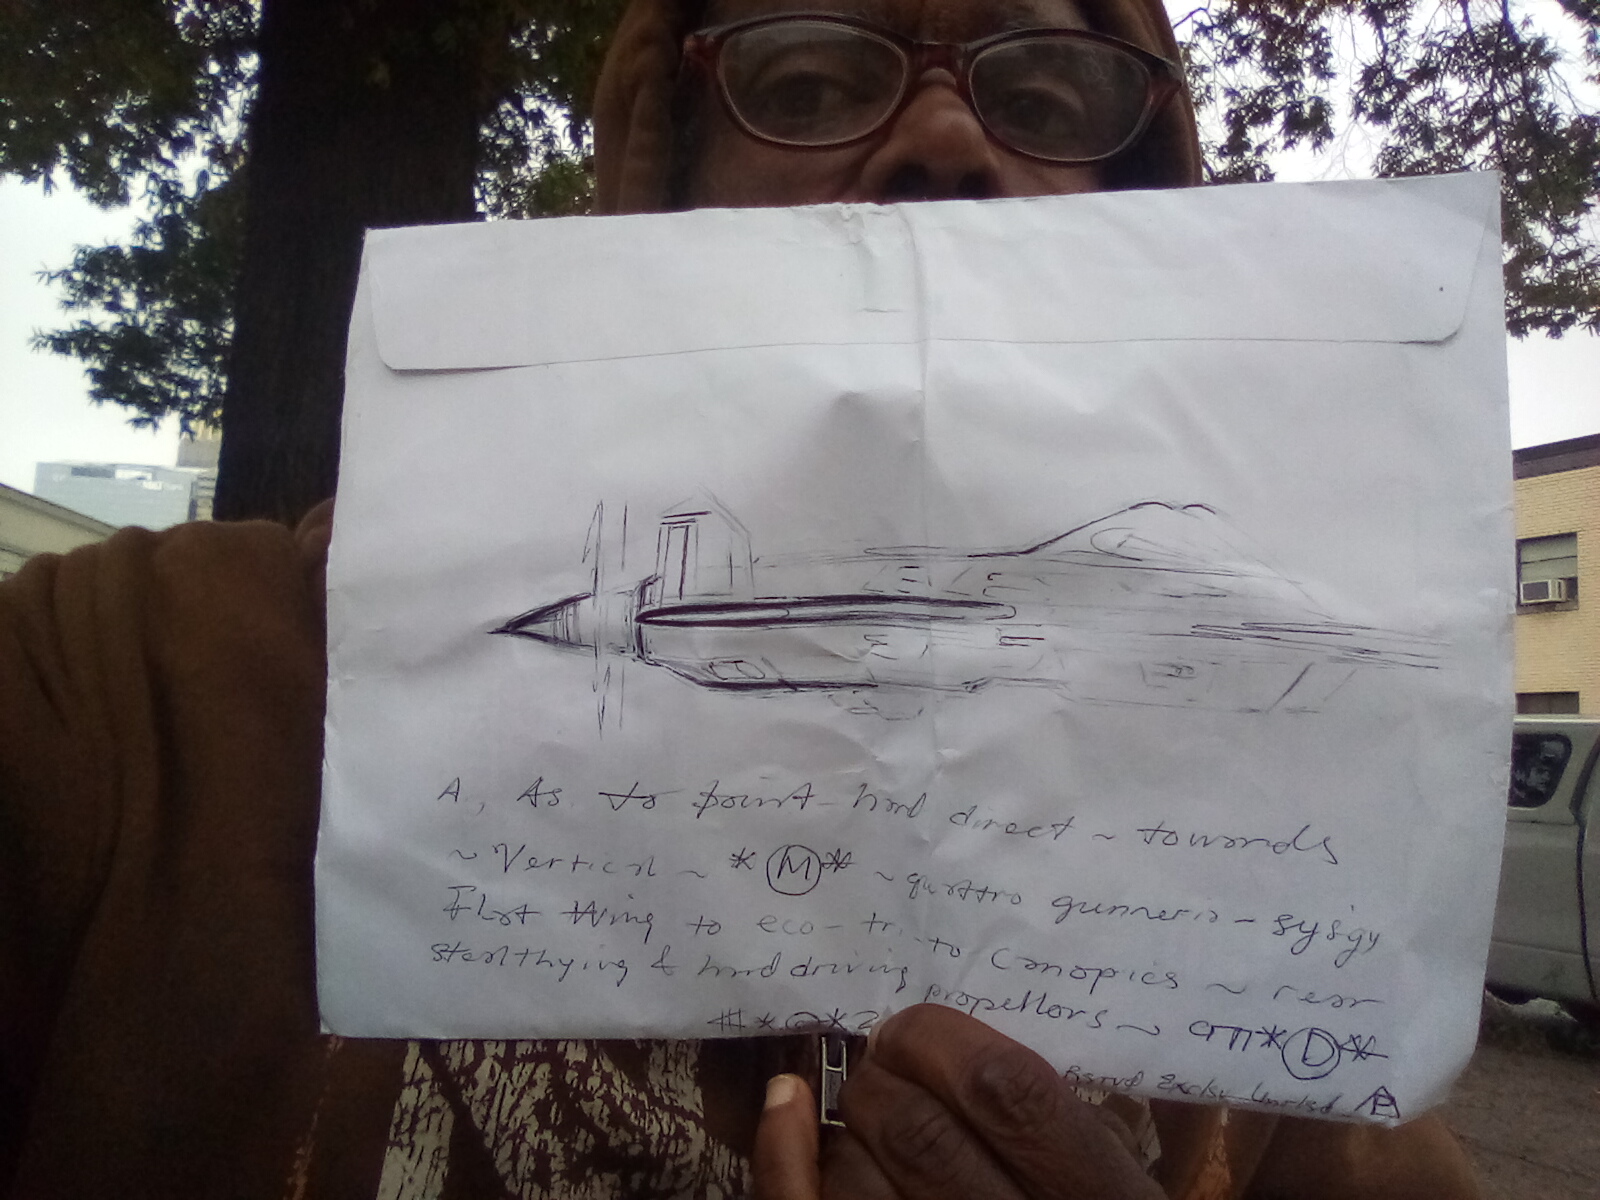 A, As to point-hard direct ~ towards
~ Vertical ~ *Ⓜ* ~ quattro gunneris - sysgy
Flat Wing to eco-tri-to Canopies ~ rear
stealthying & hard driving propellors ~ *Ⓓ*
# * @ * 2